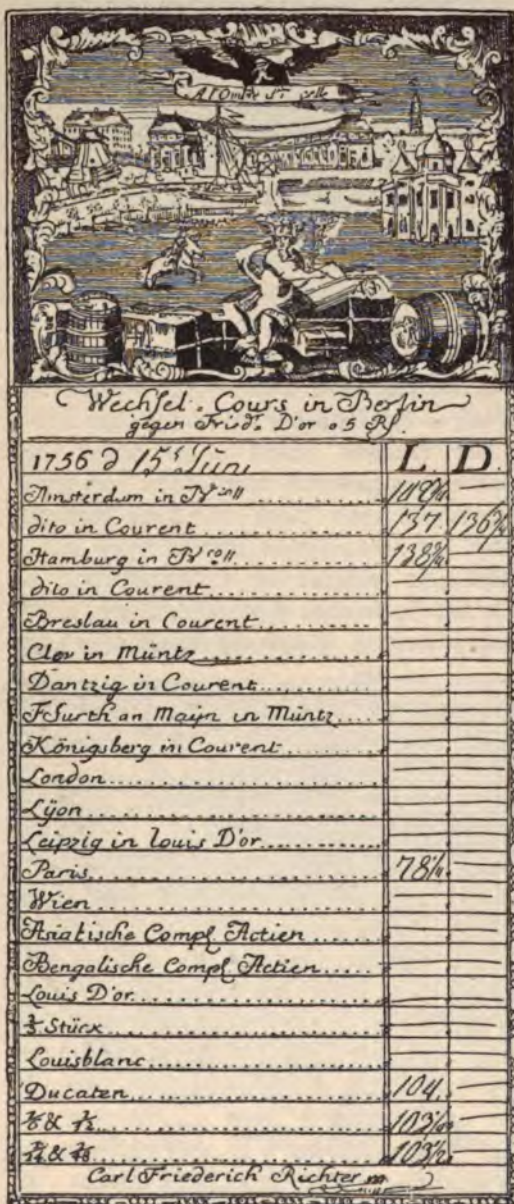 A l'Ombre de Ses Aîles
Wechsel. Cours in Berlin
gegen Fried: D'or a 5 Rf.
1756 d 15t Juni L. D.
Amsterdam in Bco
dito in Courent 137 136¾
Hamburg in Bco 138¾
dito in Courent
Breslau in Courent
Clev in Müntz
Dantzig in Courent
Ffurth an Mayn in Müntz
Königsberg in Courent
London
Lÿon
Leipzig in louis D'or
Paris 78¼
Wien
Asiatische Comp Actien
Bengalische Comp Actien
Louis D'or
⅔ Stück
Louisblanc
Ducaten 104
103¼
103½
Carl Friederich Richter